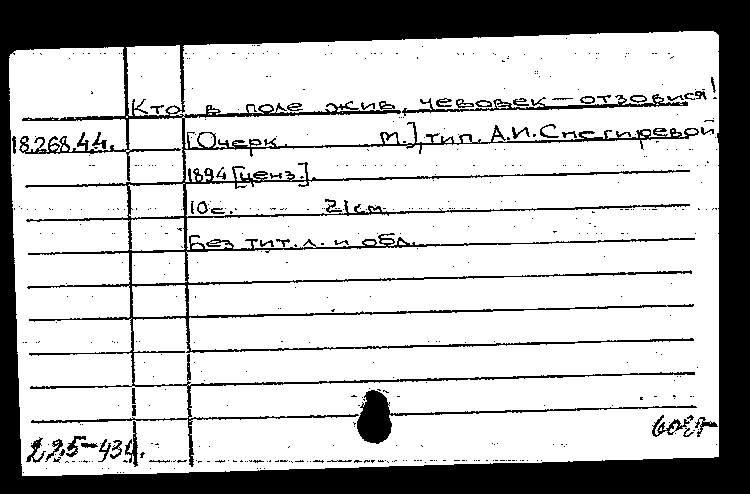 Кто в поле жив, человек — отзовися!
18.268.4.4. [Очерк. М.], тип. А.И. Снегиревой,
1894 [ценз.].
10 с. 21 см.
Без тит. л. и обл.
225-434.